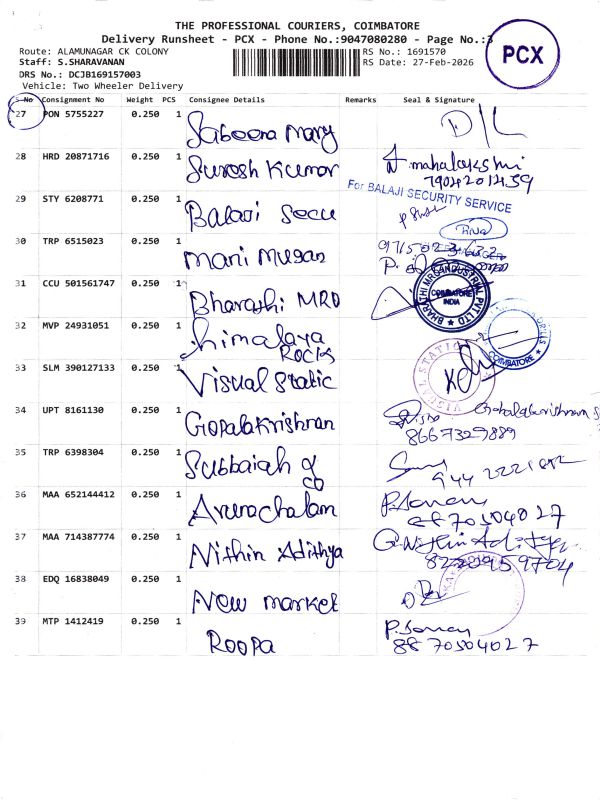 THE PROFESSIONAL COURIERS, COIMBATORE
Delivery Runsheet - PCX - Phone No.:9047080280 - Page No.:3
PCX
Route: ALAMUNAGAR CK COLONY
RS No.: 1691570
Staff: S.SHARAVANAN
RS Date: 27-Feb-2026
DRS No.: DCJB169157003
Vehicle: Two Wheeler Delivery
S No Consignment No Weight PCS Consignee Details Remarks Seal & Signature
27 PON 5755227 0.250 1 Sabeera Mary D/L
28 HRD 20871716 0.250 1 Suresh Kumar mahalakshmi
7904201439
For BALAJI SECURITY SERVICE
29 STY 6208771 0.250 1 Balaji Secu
30 TRP 6515023 0.250 1 Mani Mugan
31 CCU 501561747 0.250 1 Bharathi MRO
BHARATHI MRO INDUSTRIAL PVT LTD
COIMBATORE
INDIA
32 MVP 24931051 0.250 1 himalaya
Rocks
COIMBATORE
33 SLM 390127133 0.250 1 Visual Static
VISUAL STATIC
34 UPT 8161130 0.250 1 Gopalakrishnan
8667329889
35 TRP 6398304 0.250 1 Subbaiah &
co
36 MAA 652144412 0.250 1 Arunachalam
37 MAA 714387774 0.250 1 Nithin Adithya G. Nithin Aditya
38 EDQ 16838049 0.250 1 New market
39 MTP 1412419 0.250 1 Roopa
8870504027